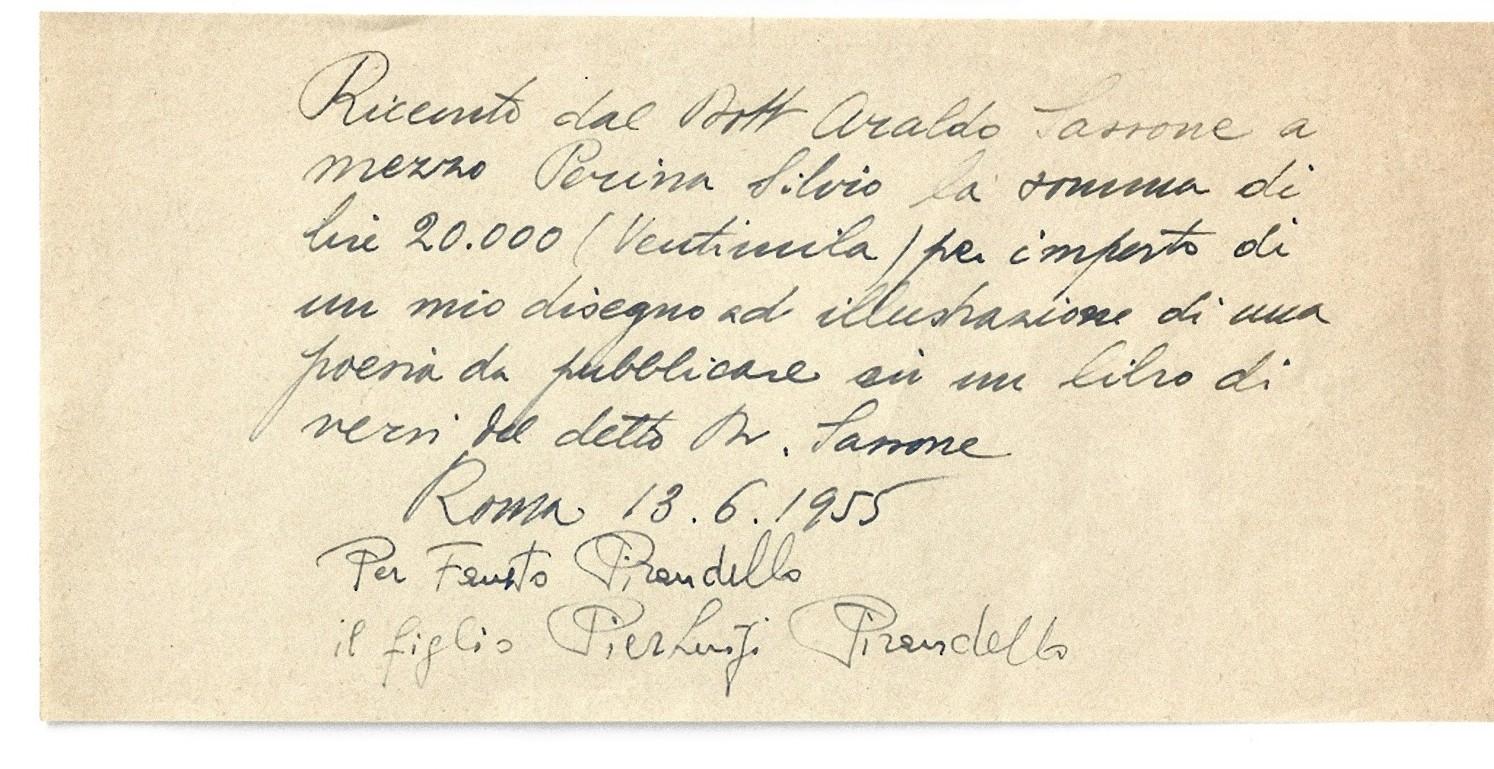 Ricevuto dal Dott Araldo Sassone a
mezzo Perina Silvio la somma di
lire 20.000 (Ventimila) per importo di
un mio disegno ad illustrazione di una
poesia da pubblicare in un libro di
versi del detto Dr. Sassone
Roma 13.6.1955
Per Fausto Pirandello
il figlio PierLuigi Pirandello